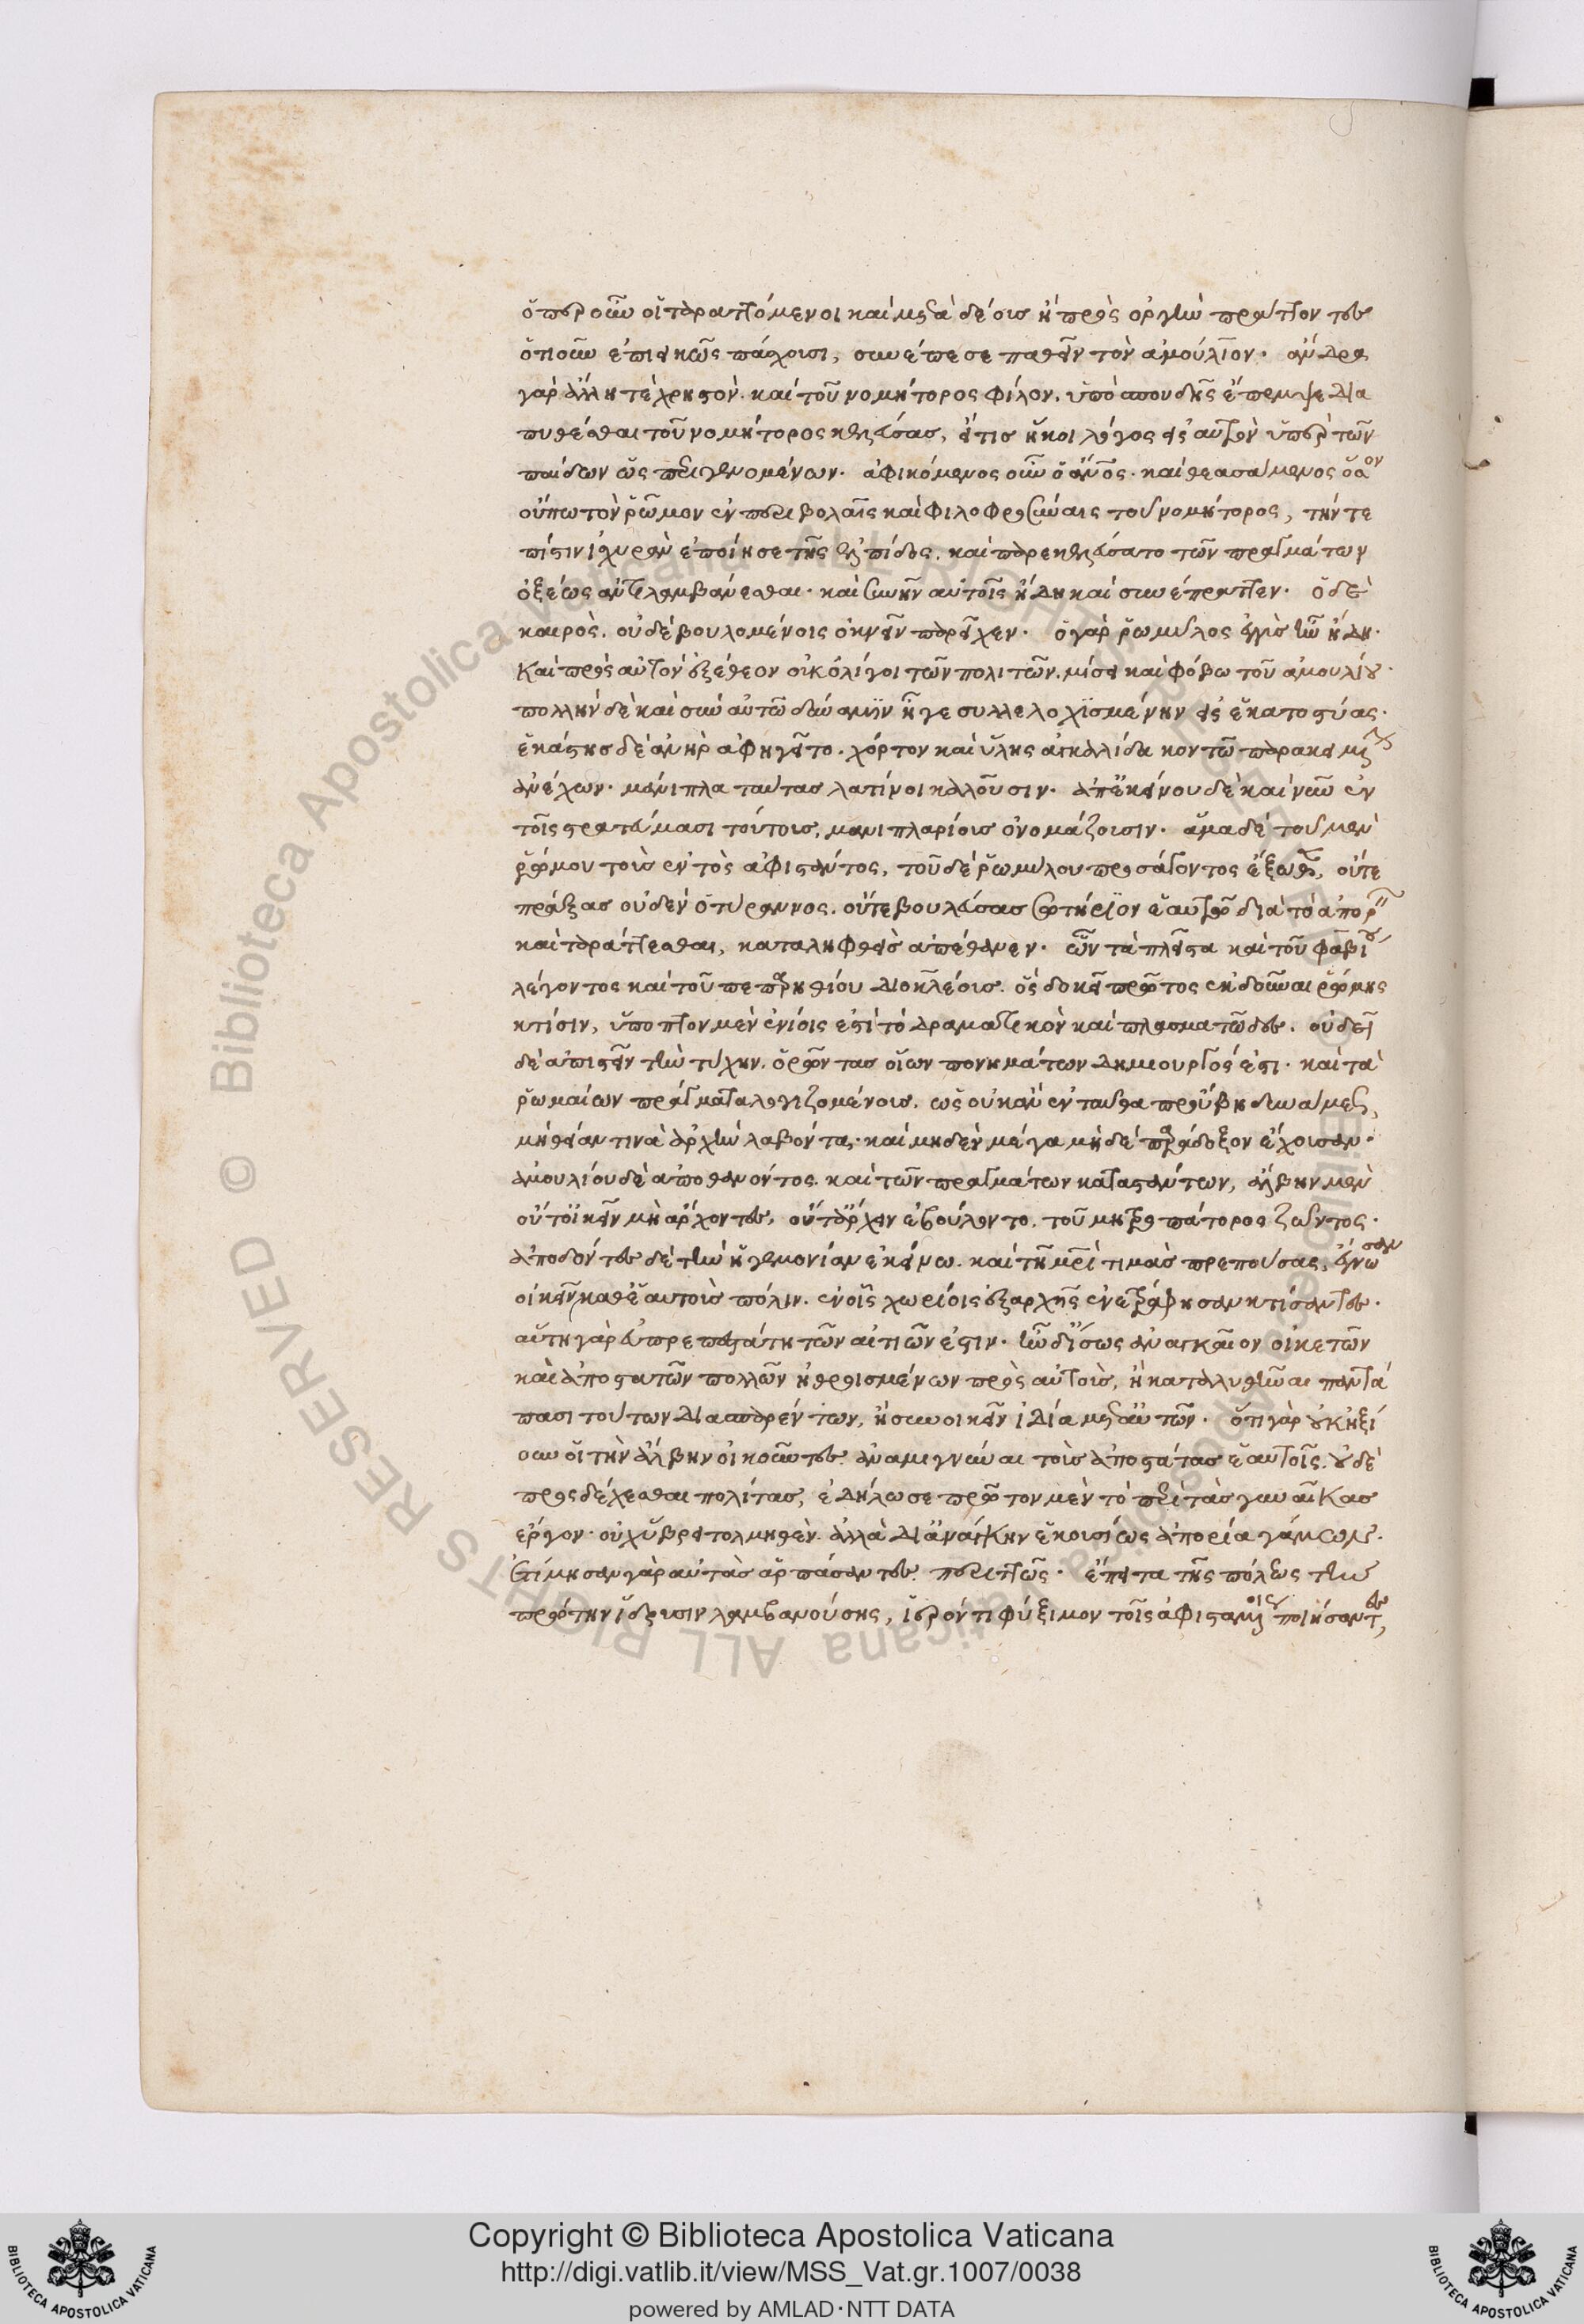 ὅπερ οὖν οἱ ταραττόμενοι καὶ μετὰ δέους ἢ πρὸς ὀργὴν πράττοντες
ὁτιοῦν ἐπιεικῶς πάσχουσι, συνέπεσε παθεῖν τὸν ἀμούλιον. ἄνδρα
γὰρ ἄλλη τε χρηστὸν. καὶ τοῦ νομήτορος φίλον. ὑπὸ σπουδῆς ἔπεμψε δια
πυθέσθαι τοῦ νομήτορος κελεύσας, εἴ τις ἥκοι λόγος εἰς αὐτὸν ὑπὲρ τῶν
παίδων ὡς περιγενομένων. ἀφικόμενος οὖν ὁ ἄνθρωπος. καὶ θεασάμενος ὅσον
οὔπω τὸν ῥῶμον ἐν περιβολαῖς καὶ φιλοφροσύναις τοῦ νομήτορος, τήν τε
πίστιν ἰσχυρὰν ἐποίησε τῆς ἐλπίδος. καὶ παρεκελεύσατο τῶν πραγμάτων
ὀξέως ἀντιλαμβάνεσθαι. καὶ συνῆν αὐτοῖς ἤδη καὶ συνέπραττεν. ὁ δὲ
καιρὸς. οὐδὲ βουλομένοις ὀκνεῖν παρεῖχεν. ὁ γὰρ ῥωμύλος ἐγγὺς ἦν ἤδη.
καὶ πρὸς αὐτὸν ἐξέθεον οὐκ ὀλίγοι τῶν πολιτῶν. μίσει καὶ φόβω τοῦ ἀμουλίου.
πολλὴν δὲ καὶ σὺν αὐτῶ δύναμιν ἦγε συλλελοχισμένην εἰς ἑκατοστύας.
ἑκάστης δὲ ἀνὴρ ἀφηγεῖτο. χόρτου καὶ ὕλης ἀγκαλίδα κοντῶ περικειμένην
ἀνέχων. μάνιπλα ταύτας λατίνοι καλοῦσιν. ἀπ' ἐκείνου δὲ καὶ νῦν ἐν
τοῖς στρατεύμασι τούτους, μανιπλαρίους ὀνομάζουσιν. ἅμα δὲ τοῦ μὲν
ῥώμου τοὺς ἐντὸς ἀφιστάντος, τοῦ δὲ ῥωμύλου προσάγοντος ἔξωθεν, οὔτε
πράξας οὐδὲν ὁ τύραννος. οὔτε βουλεύσας σωτήριον ἑαυτῶ διὰ τὸ ἀπορεῖν
καὶ ταράττεσθαι, καταληφθεὶς ἀπέθανεν. ὧν τὰ πλεῖστα καὶ τοῦ φαβίου
λέγοντος καὶ τοῦ πεπαρηθίου διοκλέους. ὃς δοκεῖ πρῶτος ἐκδοῦναι ῥώμης
κτίσιν, ὕποπτον μὲν ἐνίοις ἐστὶ τὸ δραματικὸν καὶ πλασματῶδες. οὐ δεῖ
δὲ ἀπιστεῖν τὴν τύχην. ὁρῶντας οἵων ποιημάτων δημιουργός ἐστι. καὶ τὰ
ῥωμαίων πράγματα λογιζομένους. ὡς οὐκ ἂν ἐνταῦθα προύβη δυνάμεως,
μὴ θείαν τινὰ ἀρχὴν λαβόντα. καὶ μηδὲν μέγα μηδὲ παράδοξον ἔχουσαν.
ἀμουλίου δὲ ἀποθανόντος. καὶ τῶν πραγμάτων καταστάντων, ἄλβην μὲν
οὔτ' οἰκεῖν μὴ ἄρχοντες, οὔτ' ἄρχειν ἐβούλοντο. τοῦ μητροπάτορος ζῶντος.
ἀποδόντες δὲ τὴν ἡγεμονίαν ἐκείνω. καὶ τῆ μητρὶ τιμὰς πρεπούσας, ἔγνωσαν
οἰκεῖν καθ' ἑαυτοὺς πόλιν. ἐν οἷς χωρίοις ἐξαρχῆς ἐνετράφησαν κτίσαντες.
αὕτη γὰρ εὐπρεπεστάτη τῶν αἰτιῶν ἐστιν. ἦν δ' ἴσως ἀναγκαῖον οἰκετῶν
καὶ ἀποστατῶν πολλῶν ἠθροισμένων πρὸς αὐτοὺς, ἢ καταλυθῆναι παντά
πασι τούτων διασπαρέντων, ἢ συνοικεῖν ἰδία μετ' αὐτῶν. ὅτι γὰρ οὐκ ἠξί
ουν οἱ τὴν ἄλβην οἰκοῦντες. ἀναμιγνύναι τοὺς ἀποστάτας ἑαυτοῖς. οὐδὲ
προσδέχεσθαι πολίτας, ἐδήλωσε πρῶτον μὲν τὸ περὶ τὰς γυναῖκας
ἔργον. οὐχ ὕβρει τολμηθὲν. ἀλλὰ δι' ἀνάγκην ἑκουσίως ἀπορία γάμων.
ἐτίμησαν γὰρ αὐτὰς ἁρπάσαντες. περιττῶς. ἔπειτα τῆς πόλεως τὴν
πρώτην ἵδρυσιν λαμβανούσης, ἱερόν τι φύξιμον τοῖς ἀφισταμένοις ποιήσαντες,
Copyright © Biblioteca Apostolica Vaticana
http://digi.vatlib.it/view/MSS_Vat.gr.1007/0038
powered by AMLAD·NTT DATA